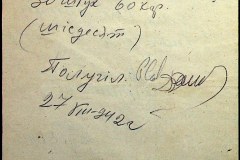 30 штук 60 кар.
(шісдесят)
Получіл
27 VIII-942 г